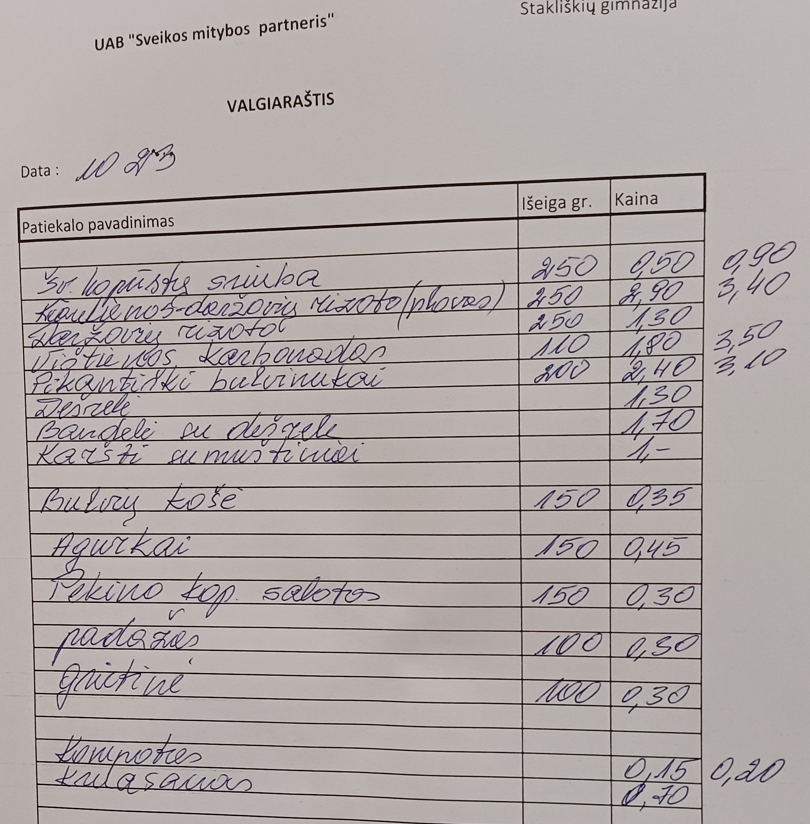 Stakliškių gimnazija
UAB "Sveikos mitybos partneris"
VALGIARAŠTIS
Data : 10 23
Patiekalo pavadinimas Išeiga gr. Kaina
Šv. kopūstų sriuba 250 0,50 0,90
Kiaulienos-daržovių rizoto (plovas) 250 2,90 3,40
Daržovių rizoto 250 1,30
Vištienos karbonadas 110 1,80 3,50
Pikantiški bulvinukai 200 2,40 3,10
Dešrelė 1,30
Bandelė su dešrele 1,70
Karšti sumuštiniai 1,-
Bulvių košė 150 0,35
Agurkai 150 0,45
Pekino kop. salotos 150 0,30
padažas 100 0,30
grietinė 100 0,30
Kompotas 0,15 0,20
Kruasanas 0,70